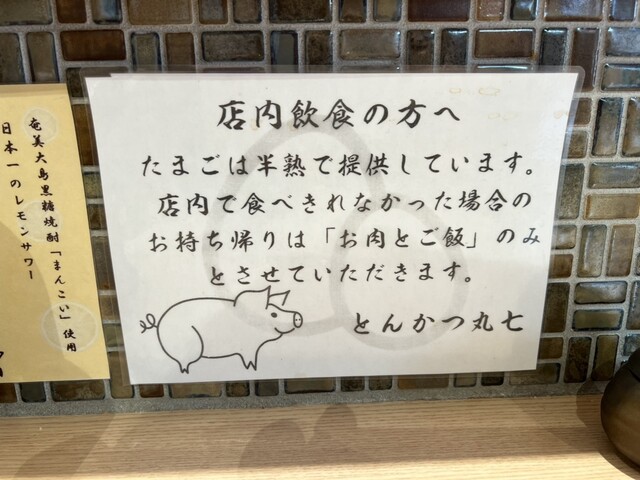 店内飲食の方へ
たまごは半熟で提供しています。
店内で食べきれなかった場合の
お持ち帰りは「お肉とご飯」のみ
とさせていただきます。
とんかつ丸七
奄美大島黒糖焼酎「まんこい」使用
日本一のレモンサワー